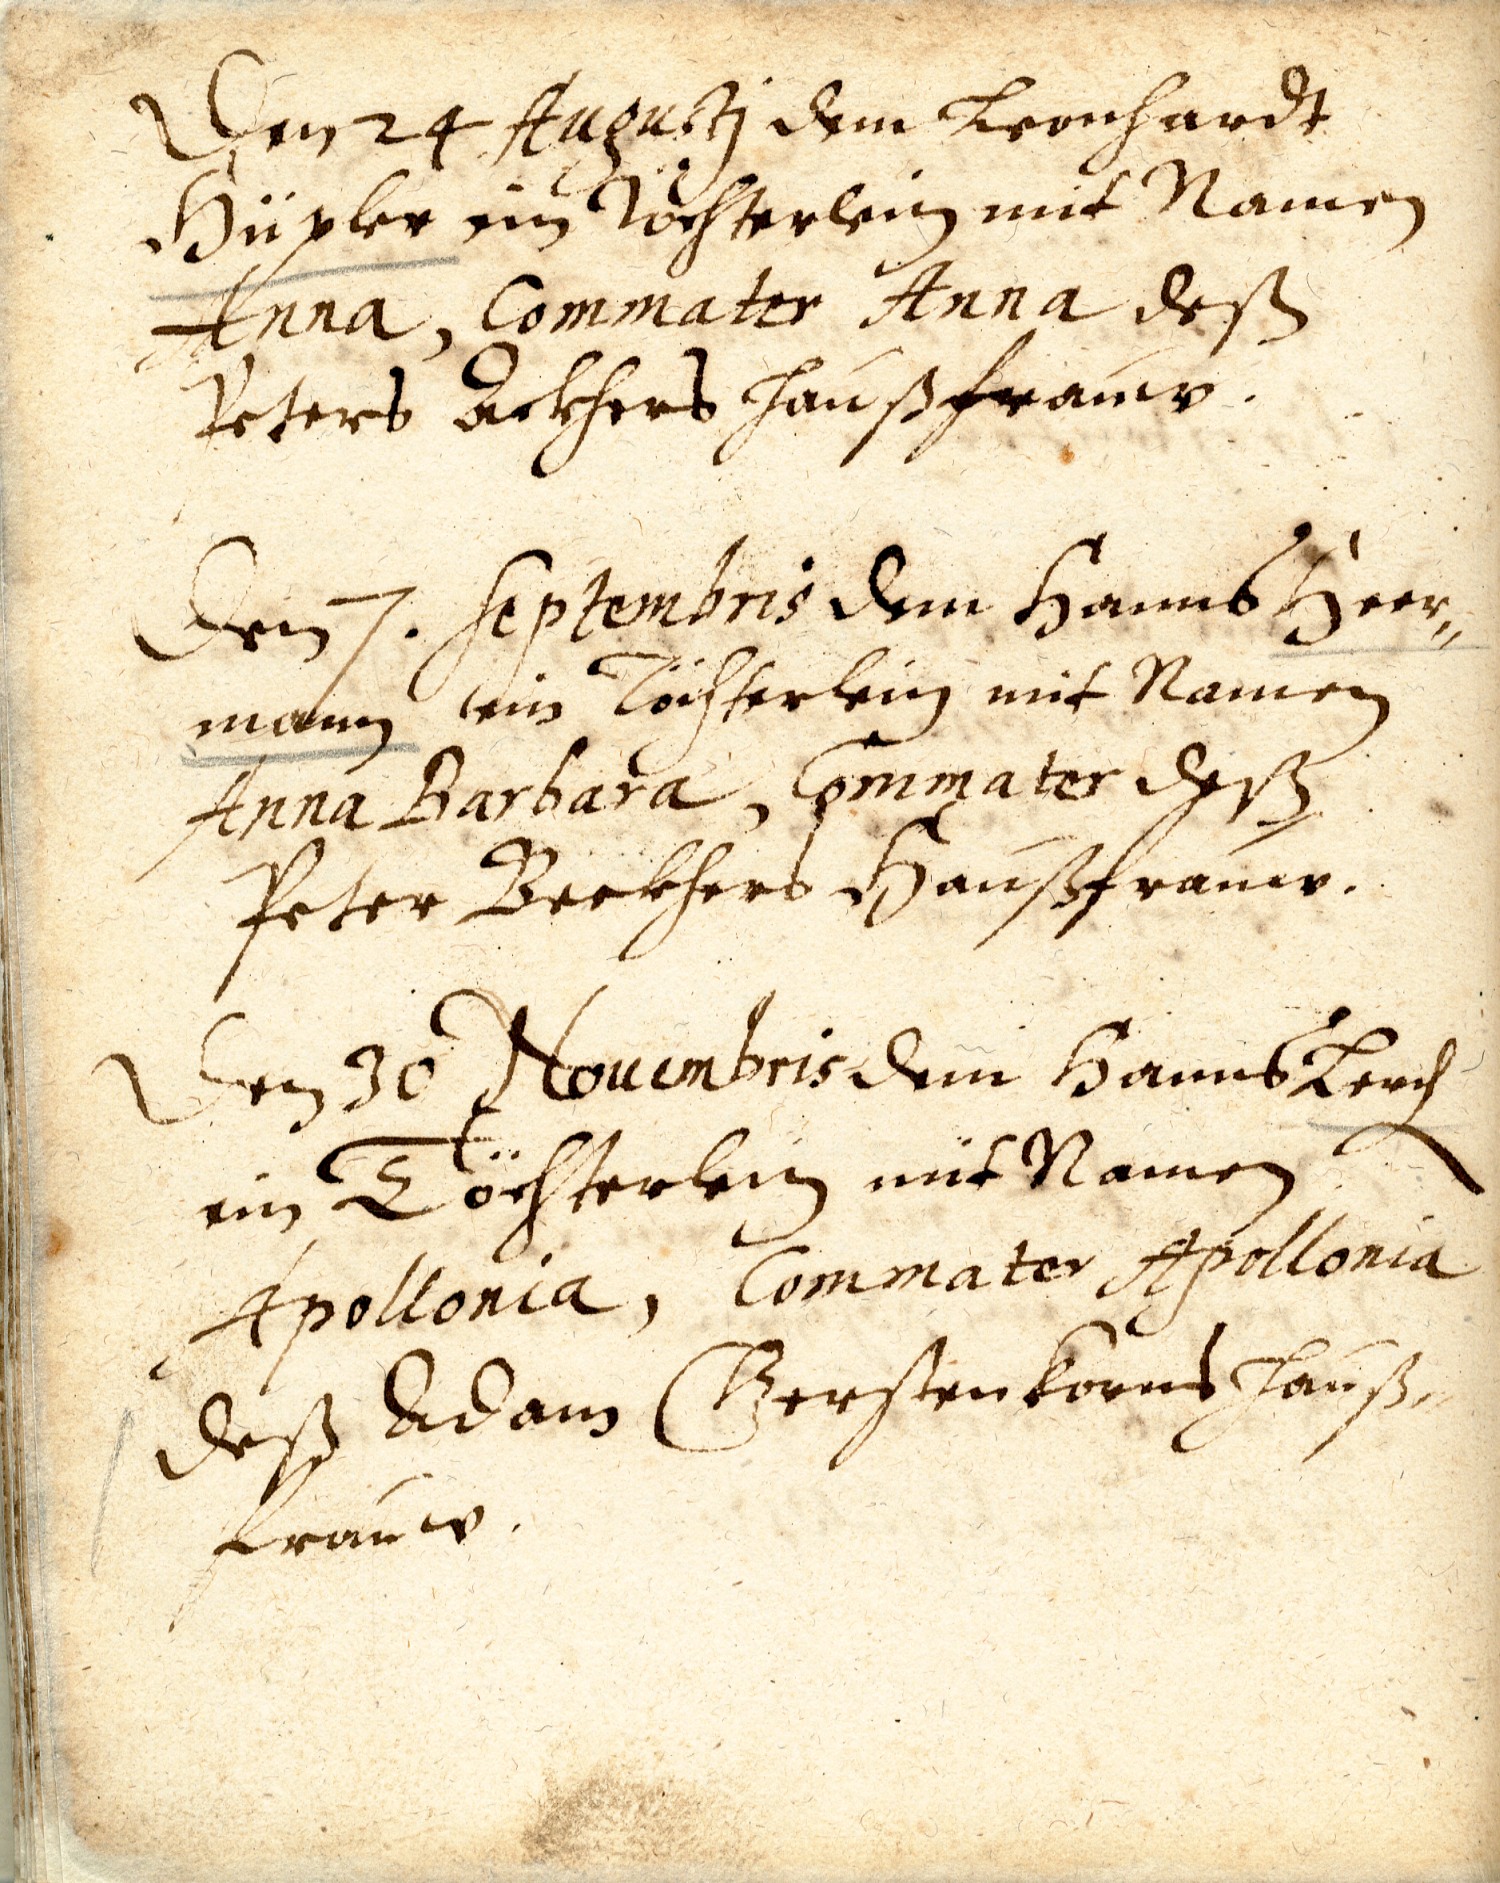 Den 24 Augustj dem Leonhardt
Hüpler ein Töchterlein mit Namen
Anna, Commater Anna deß
Peters Ackhers Haußfrauw.
Den 7. Septembris dem Hanns Heer„
mann ein Töchterlein mit Namen
Anna Barbara, Commater deß
Peter Beckhers Haußfrauw.
Den 30 Nouembris dem Hanns Lerch
ein Töchterlein mit Namen
Apollonia, Commater Apollonia
deß Adam Gerstenkorns Hauß„
frauw.